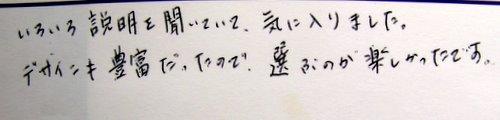 いろいろ説明を聞いていて、気に入りました。
デザインも豊富だったので、選ぶのが楽しかったです。